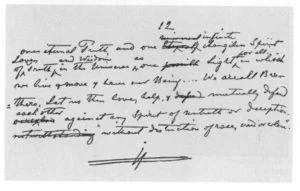 12.
~~universal~~ infinite
one eternal Truth, and one ~~thought~~ changeless Spirit
Love, and Wisdom as for all,
of Truth, in the Universe & one ~~possible~~ Light, in which
we live & move & have our Being.... We are all Brothers.
Let us then love, help, & ~~defend~~ mutually defend
each other
against any Spirit of untruth or deception,
~~notwithstanding~~ "without distinction of race, creed or color."